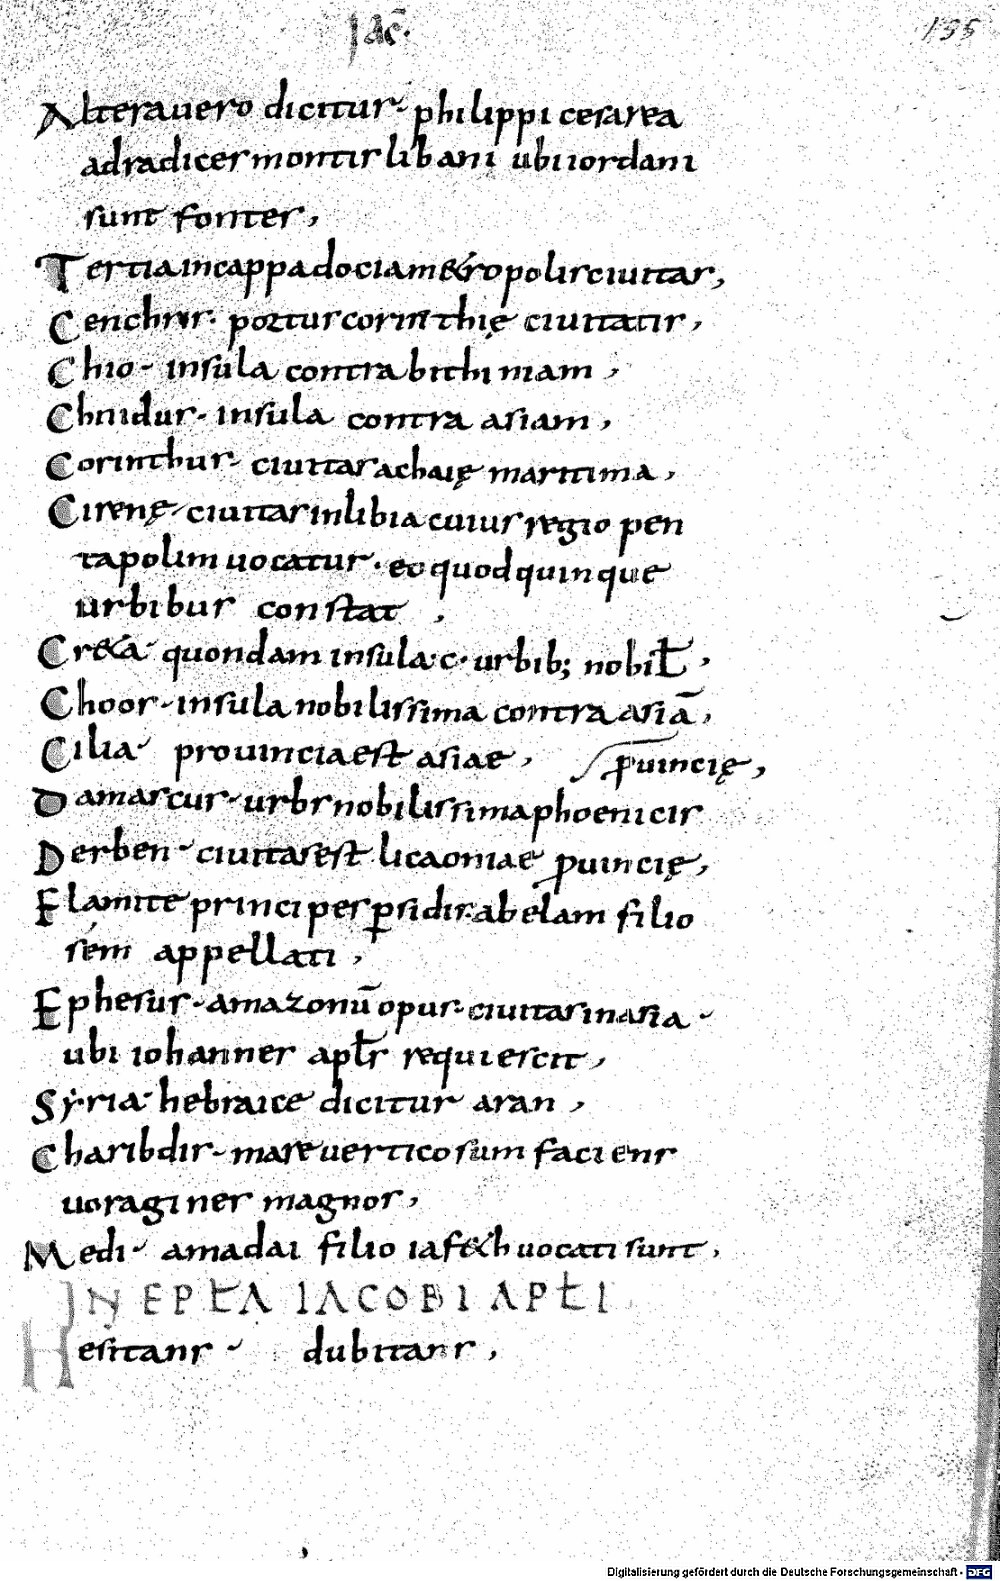 Iac̄.
155
Altera uero dicitur philippi cesarea
ad radices montis libani ubi iordani
sunt fontes,
Tertia in cappadocia metropolis ciuitas,
Cenchris · portus corinthię ciuitatis,
Chio · insula contra bithiniam,
Chnidus · insula contra asiam,
Corinthus · ciuitas achaię maritima,
Cirenę · ciuitas in libia cuius regio pen
tapolim uocatur · eo quod quinque
urbibus constat,
Creta quondam insula · c · urbib; nobiƚ,
Choos · insula nobilissima contra asiā,
Cilia prouincia est asiae, ꝓuincię,
Damascus · urbs nobilissima phoenicis
Derben · ciuitas est licaoniae ꝓuincię,
Elamite principes ꝑsidis · ab elam filio
sem appellati,
Ephesus · amazonū opus · ciuitas in asia ·
ubi iohannes apƚs requiescit,
Syria · hebraice dicitur aran,
Charibdis · mare uerticosum faciens
uoragines magnos,
Medi · a madai filio iafeth uocati sunt,
IN EPƚA IACOBI APƚI
Hesitans · dubitans,
Digitalisierung gefördert durch die Deutsche Forschungsgemeinschaft - DFG